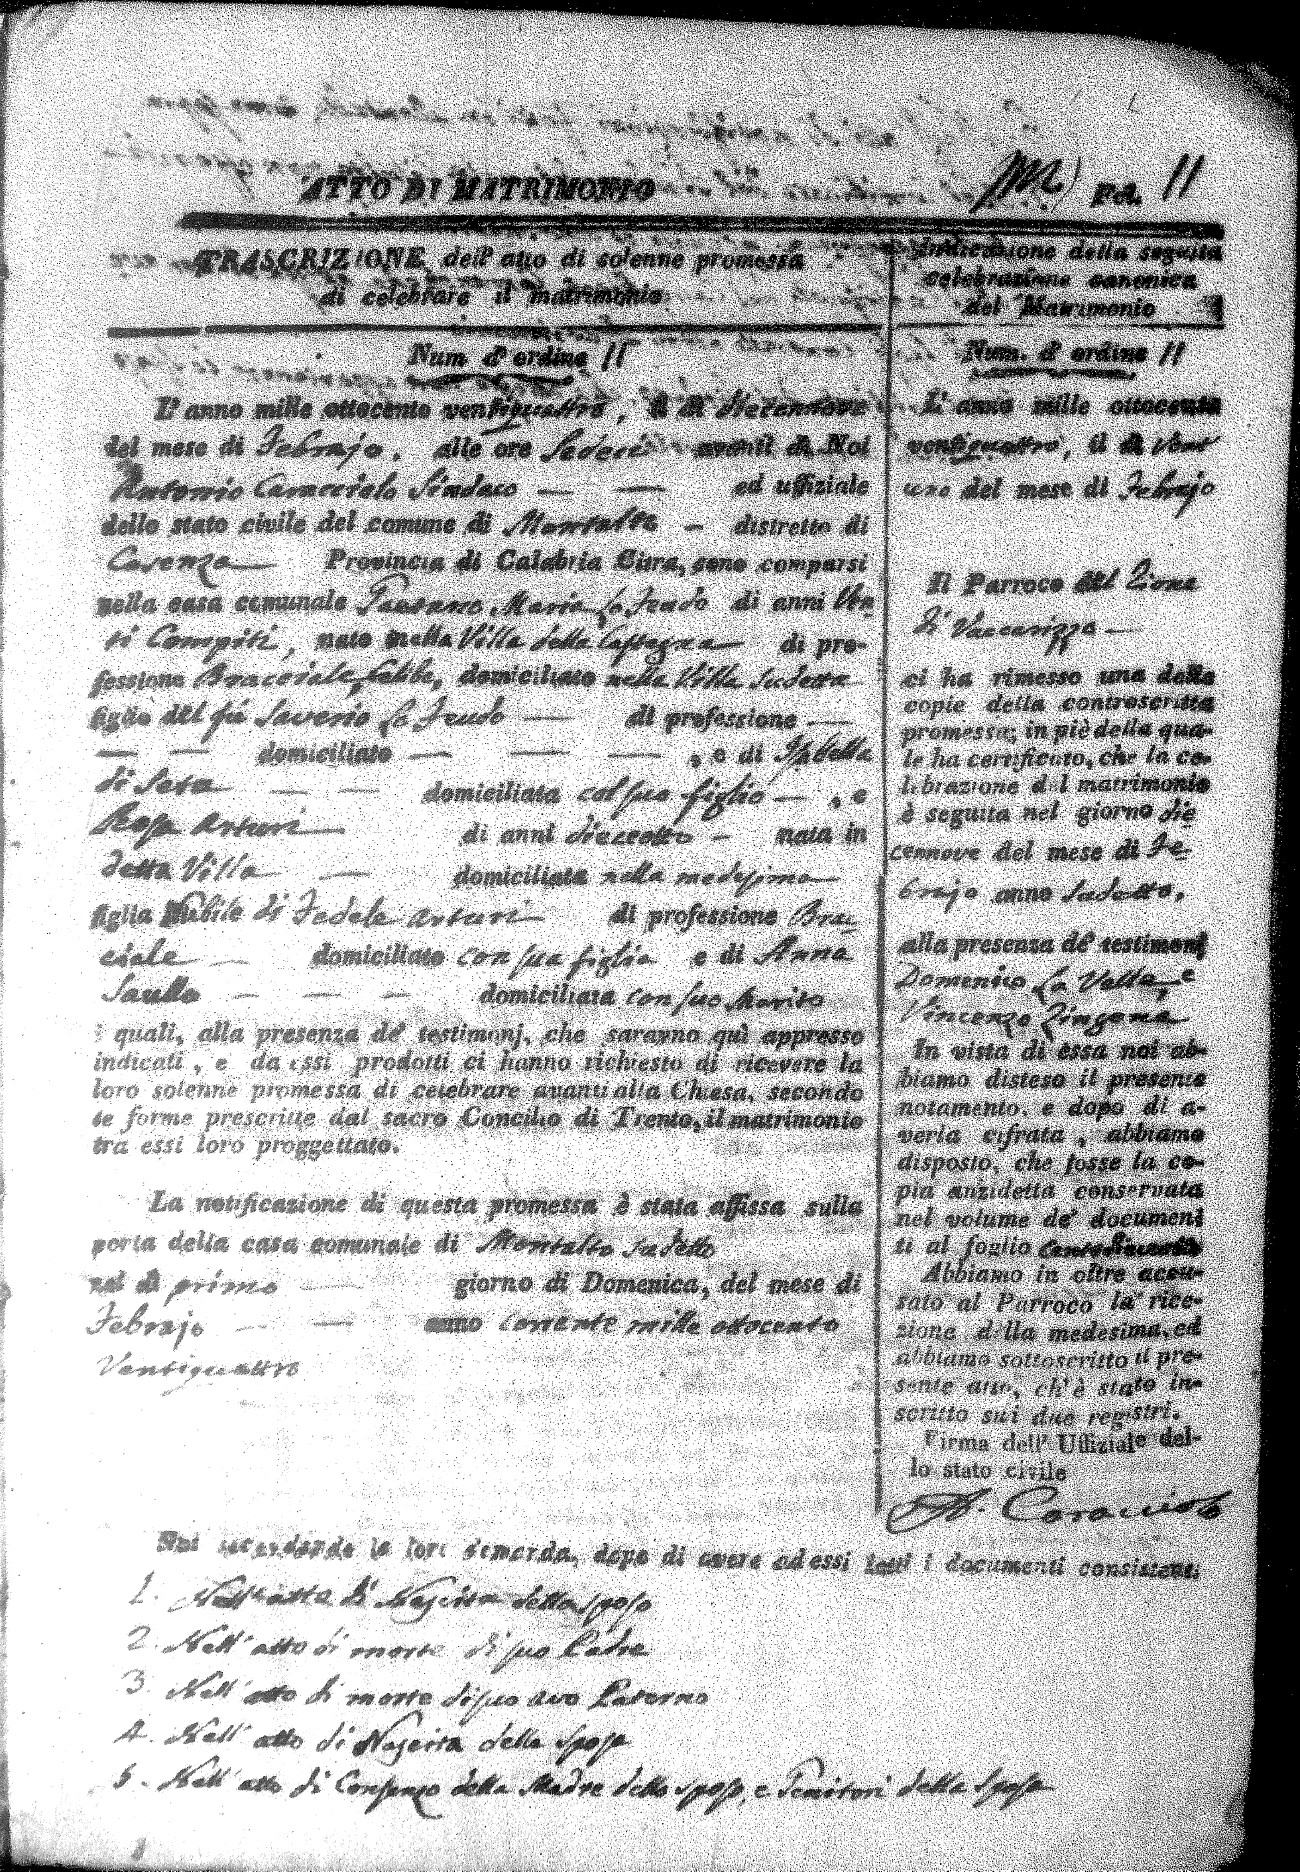 ATTO DI MATRIMONIO
Fol. 11
TRASCRIZIONE dell' atto di solenne promessa
di celebrare il matrimonio
Num d' ordine 11
L' anno mille ottocento ventiquattro, il di diecennove
del mese di Febrajo. alle ore Sedeci avanti di Noi
Antonio Caracciolo Sindaco — — ed uffiziale
dello stato civile del comune di Montalto — distretto di
Cosenza — Provincia di Calabria Citra, sono comparsi
nella casa comunale Gaetano Maria Lo Feudo di anni Ven
ti Compiti, nato nella Villa della Castagna — di pro-
fessione Bracciale, Celibe, domiciliato nella Villa Sudetta
figlio del fù Saverio Lo Feudo — di professione —
— — domiciliato — — — , e di Isabella
di Seta — — domiciliata col suo figlio — , e
Rosa Arturi — di anni dieceotto — nata in
detta Villa — domiciliata nella medesima —
figlia Nubile di Fedele Arturi — di professione Brac-
ciale — domiciliato con sua figlia e di Anna
Saullo — — — domiciliata con suo Marito
i quali, alla presenza de' testimonj, che saranno quì appresso
indicati, e da essi prodotti ci hanno richiesto di ricevere la
loro solenne promessa di celebrare avanti alla Chiesa, secondo
le forme prescritte dal sacro Concilio di Trento, il matrimonio
tra essi loro proggettato.
La notificazione di questa promessa è stata affissa sulla
porta della casa comunale di Montalto sudetto
nel dì primo — giorno di Domenica, del mese di
Febrajo — — anno corrente mille ottocento
Ventiquattro
Indicazione della seguita
celebrazione canonica
del Matrimonio
Num. d' ordine 11
L' anno mille ottocento
ventiquattro, il di Vent
uno del mese di Febrajo
Il Parroco del Zona
di Vaccarizzo —
ci ha rimesso una della
copie della controscritta
promessa; in piè della qua-
le ha certificato, che la ce-
lebrazione del matrimonio
è seguita nel giorno die-
cennove del mese di Fe-
brajo anno sudetto,
alla presenza de' testimonj
Domenico La Valle, e
Vincenzo Zingone
In vista di essa noi ab-
biamo disteso il presente
notamento, e dopo di a-
verla cifrata, abbiamo
disposto, che fosse la co-
pia anzidetta conservata
nel volume de' documen
ti al foglio
Abbiamo in oltre accu-
sato al Parroco la rice-
zione della medesima, ed
abbiamo sottoscritto il pre-
sente atto, ch' è stato in-
scritto sui due registri.
Firma dell' Uffiziale del-
lo stato civile
A. Caracciolo
Noi secondando la loro domanda, dopo di avere ad essi letti i documenti consistenti
1. Nell' atto di Nascita dello sposo
2. Nell' atto di morte di suo Padre
3. Nell' atto di morte di suo avo Paterno
4. Nell' atto di Nascita della sposa
5. Nell' atto di Consenzo della Madre dello sposo, e Genitori della Sposa